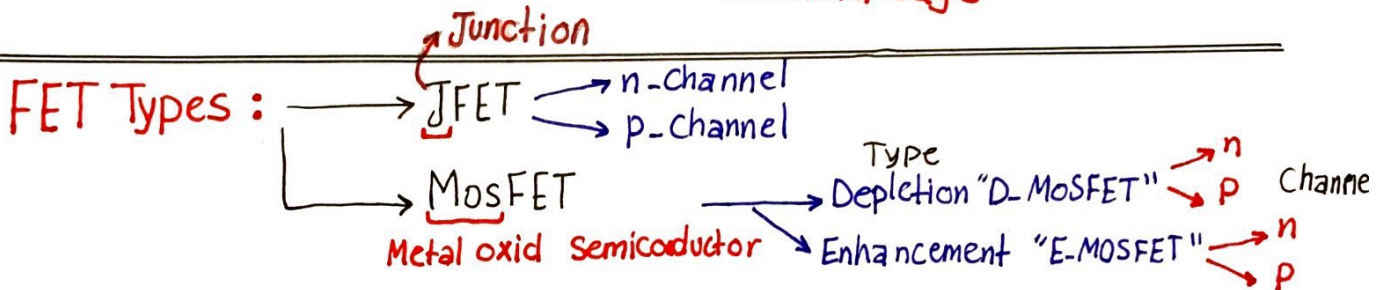 Junction
FET Types :
JFET
n-Channel
p-Channel
MosFET
Metal oxid Semicoductor
Type
Depletion "D-MOSFET"
n
P
Channe
Enhancement "E-MOSFET"
n
P